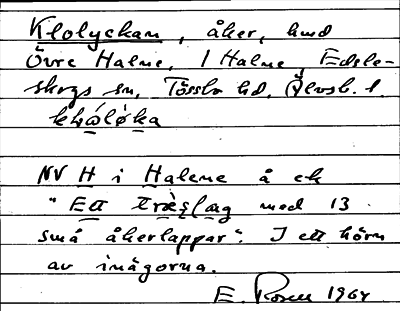 Klolyckan, åker, hmd
Övre Halne, 1 Halne, Edsle-
skogs sn, Tössbo hd, Älvsb. l.
NV H i Halene å ek
"Ett træslag med 13
små åkerlappar". I ett hörn
av inägorna.
E. Rosell 1964